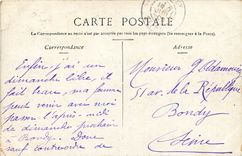 CARTE POSTALE
La Correspondance au recto n'est pas acceptée par tous les pays étrangers (Se renseigner à la Poste)
Correspondance
Adresse
Enfin, j'ai un
dimanche libre, et
il fait beau, ma femme
peut venir avec moi
passer l'après-midi
de dimanche prochain
à Bondy. Donc
sauf contrordre de
Monsieur
51 av. de la République
Bondy
Seine